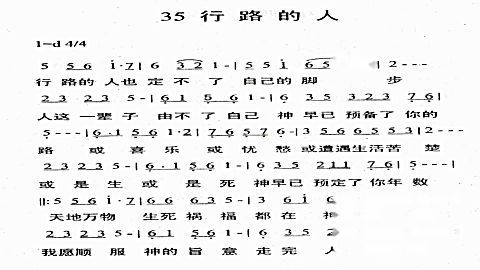 35 行 路 的 人
1=d 4/4
5 5 6 i·7 | 6 3 2 1 - | 5 5 i 6 5 | 2 - - -
行 路的 人也 定 不 了 自己的 脚 步
2 3 2 3 5 - | 6 1 5 6 1 - | 6 3 5 3 2 3 7 6 |
人这 一辈 子 由不 了 自己 神 早已 预备了 你的
5 - - - | 6·1 5 6 1·2 | 7 6 5 7 6 - | 3 5 6 6 5 5 3 | 2 - - -
路 或 喜 乐 或 忧 愁 或遭遇生活苦 楚
2 3 2 3 5 - | 6·1 5 6 1 - | 6 3 5 2 1 1 7 6 | 5 - - - |
或 是 生 或 是 死 神早已 预定了 你年 数
‖: 5 5 6 i·7 | 6 6 6 3 5 - | 3 6 i
天地万物 生死 祸 福 都 在
2 3 2 3 5 - | 6 1 5 6 1 - | 6 3 5
我愿顺 服 神的 旨 意 走 完 人